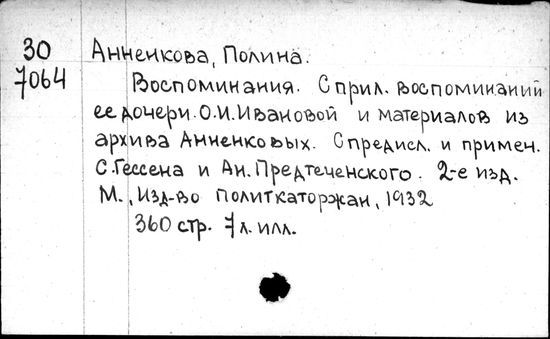 30 Анненкова, Полина.
7064 Воспоминания. С прил. воспоминаний
ее дочери О.И.Ивановой и материалов из
архива Анненковых. С предисл. и примеч.
С.Гессена и Ан.Предтеченского. 2-е изд.
М., Изд-во политкаторжан, 1932
360 стр. 7 л. илл.